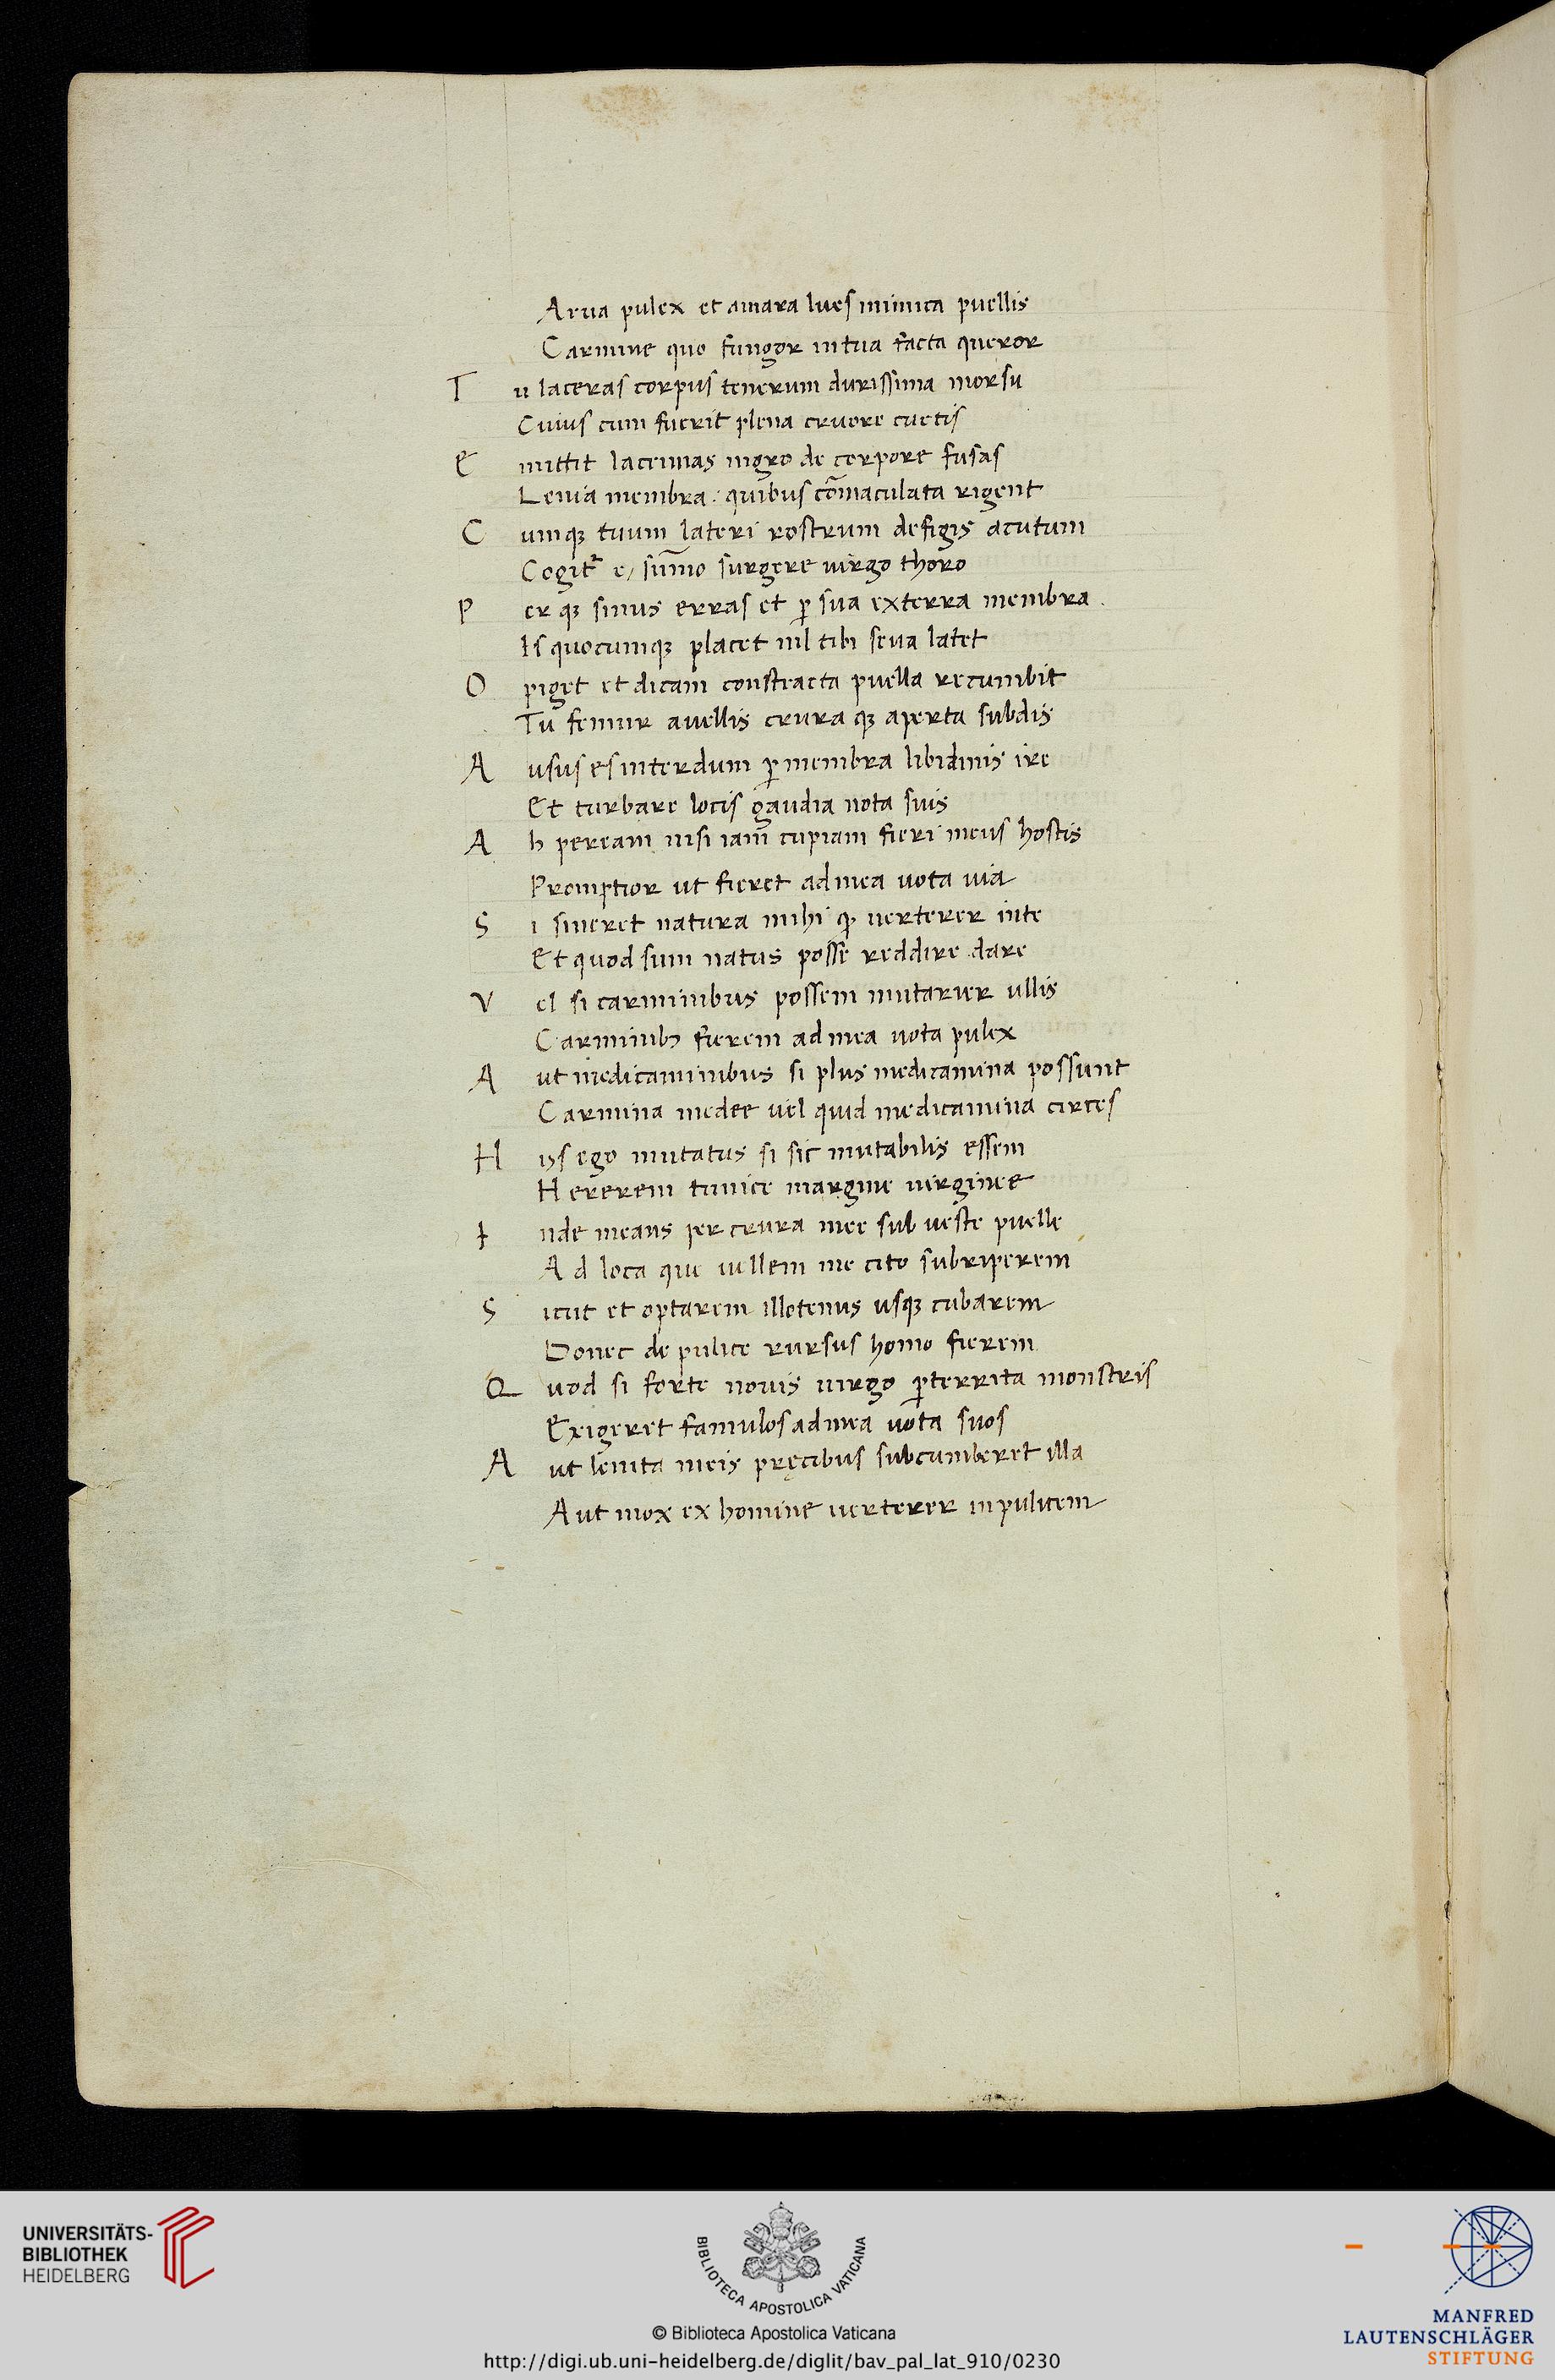 Arua pulex et amara lues inimica puellis
Carmine quo fungor in tua facta queror
Tu laceras corpus tenerum durissima morsu
Cuius cum fuerit plena cruore cuctis
Emittit lacrimas nigro de corpore fusas
Leuia membra : quibus co̅maculata rigent
Cumqꝫ tuum lateri rostrum defigis acutum
Cogit᷑ e, su̅mo surgere uirgo thoro
Per qꝫ sinus erras et ꝑ sua exterra membra .
Is quocumqꝫ placet nil tibi seua latet
O piget et dicam constracta puella recumbit
Tu femur auellis crura qꝫ aperta subdis
Ausus es interdum ꝑ membra libidinis ire
Et turbare locis gaudia nota suis
Ah peream nisi iam cupiam fieri meus hostis
Promptior ut fieret ad mea uota uia
Si sineret natura mihi ꝙ uerterer inte
Et quod sum natus posse reddire dare
Vel si carminibus possem mutarier ullis
Carminibꝫ fierem ad mea uota pulex
Aut medicaminibus si plus medicamina possunt
Carmina medee uel quid medicamina circes
Hys ego mutatus si sic mutabilis essem
Hererem tunice margine uirginee
Inde means per crura mee sub ueste puelle
Ad loca que uellem me cito subriperem
Sicut et optarem illotenus usqꝫ cubarem
Donec de pulice rursus homo fierem
Quod si forte nouis uirgo ꝑterrita monstris
Exigeret famulos ad mea uota suos
Aut lenita meis pręcibus subcumberet illa
Aut mox ex homine uerterer in pulicem
UNIVERSITÄTS-
BIBLIOTHEK
HEIDELBERG
BIBLIOTECA APOSTOLICA VATICANA
© Biblioteca Apostolica Vaticana
http://digi.ub.uni-heidelberg.de/diglit/bav_pal_lat_910/0230
MANFRED
LAUTENSCHLÄGER
STIFTUNG